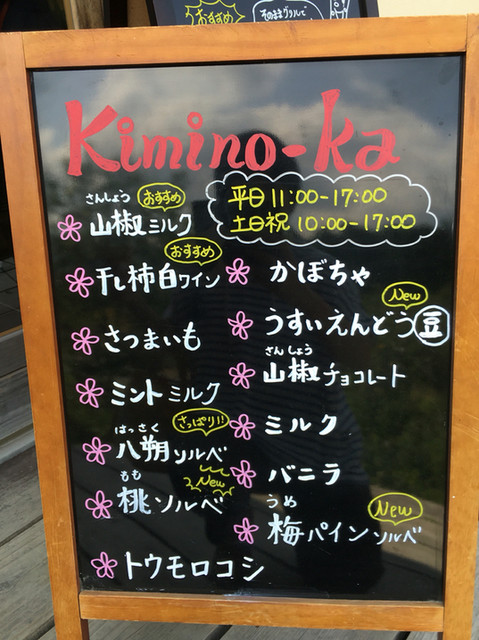 おすすめ
そのままグリルで
Kimino-ka
平日 11:00-17:00
土日祝 10:00-17:00
さんしょう
おすすめ
山椒ミルク
おすすめ
干し柿白ワイン
かぼちゃ
さつまいも
New
うすいえんどう豆
ミントミルク
さんしょう
山椒チョコレート
はっさく
さっぱり!!
八朔ソルベ
ミルク
もも
New
桃ソルベ
バニラ
うめ
New
梅パインソルベ
トウモロコシ